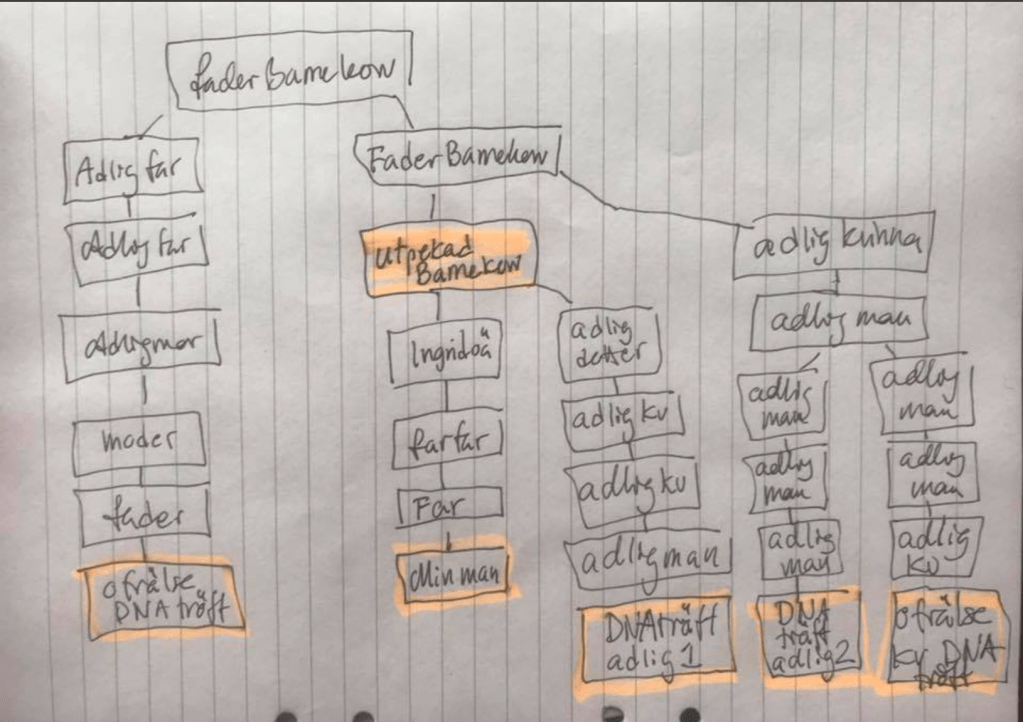 fader Bamekow
Adlig far
Fader Bamekow
Adlig far
utpekad
Bamekow
adlig kvinna
Adlig mor
Ingridoä
adlig
dotter
adlig man
moder
farfar
adlig kv
adlig
man
adlig
man
fader
Far
adlig kv
adlig
man
adlig
man
ofrälse
DNA träff
Min man
adlig man
adlig
man
adlig
kv
DNA träff
adlig 1
DNA
träff
adlig 2
ofrälse
kv DNA
träff